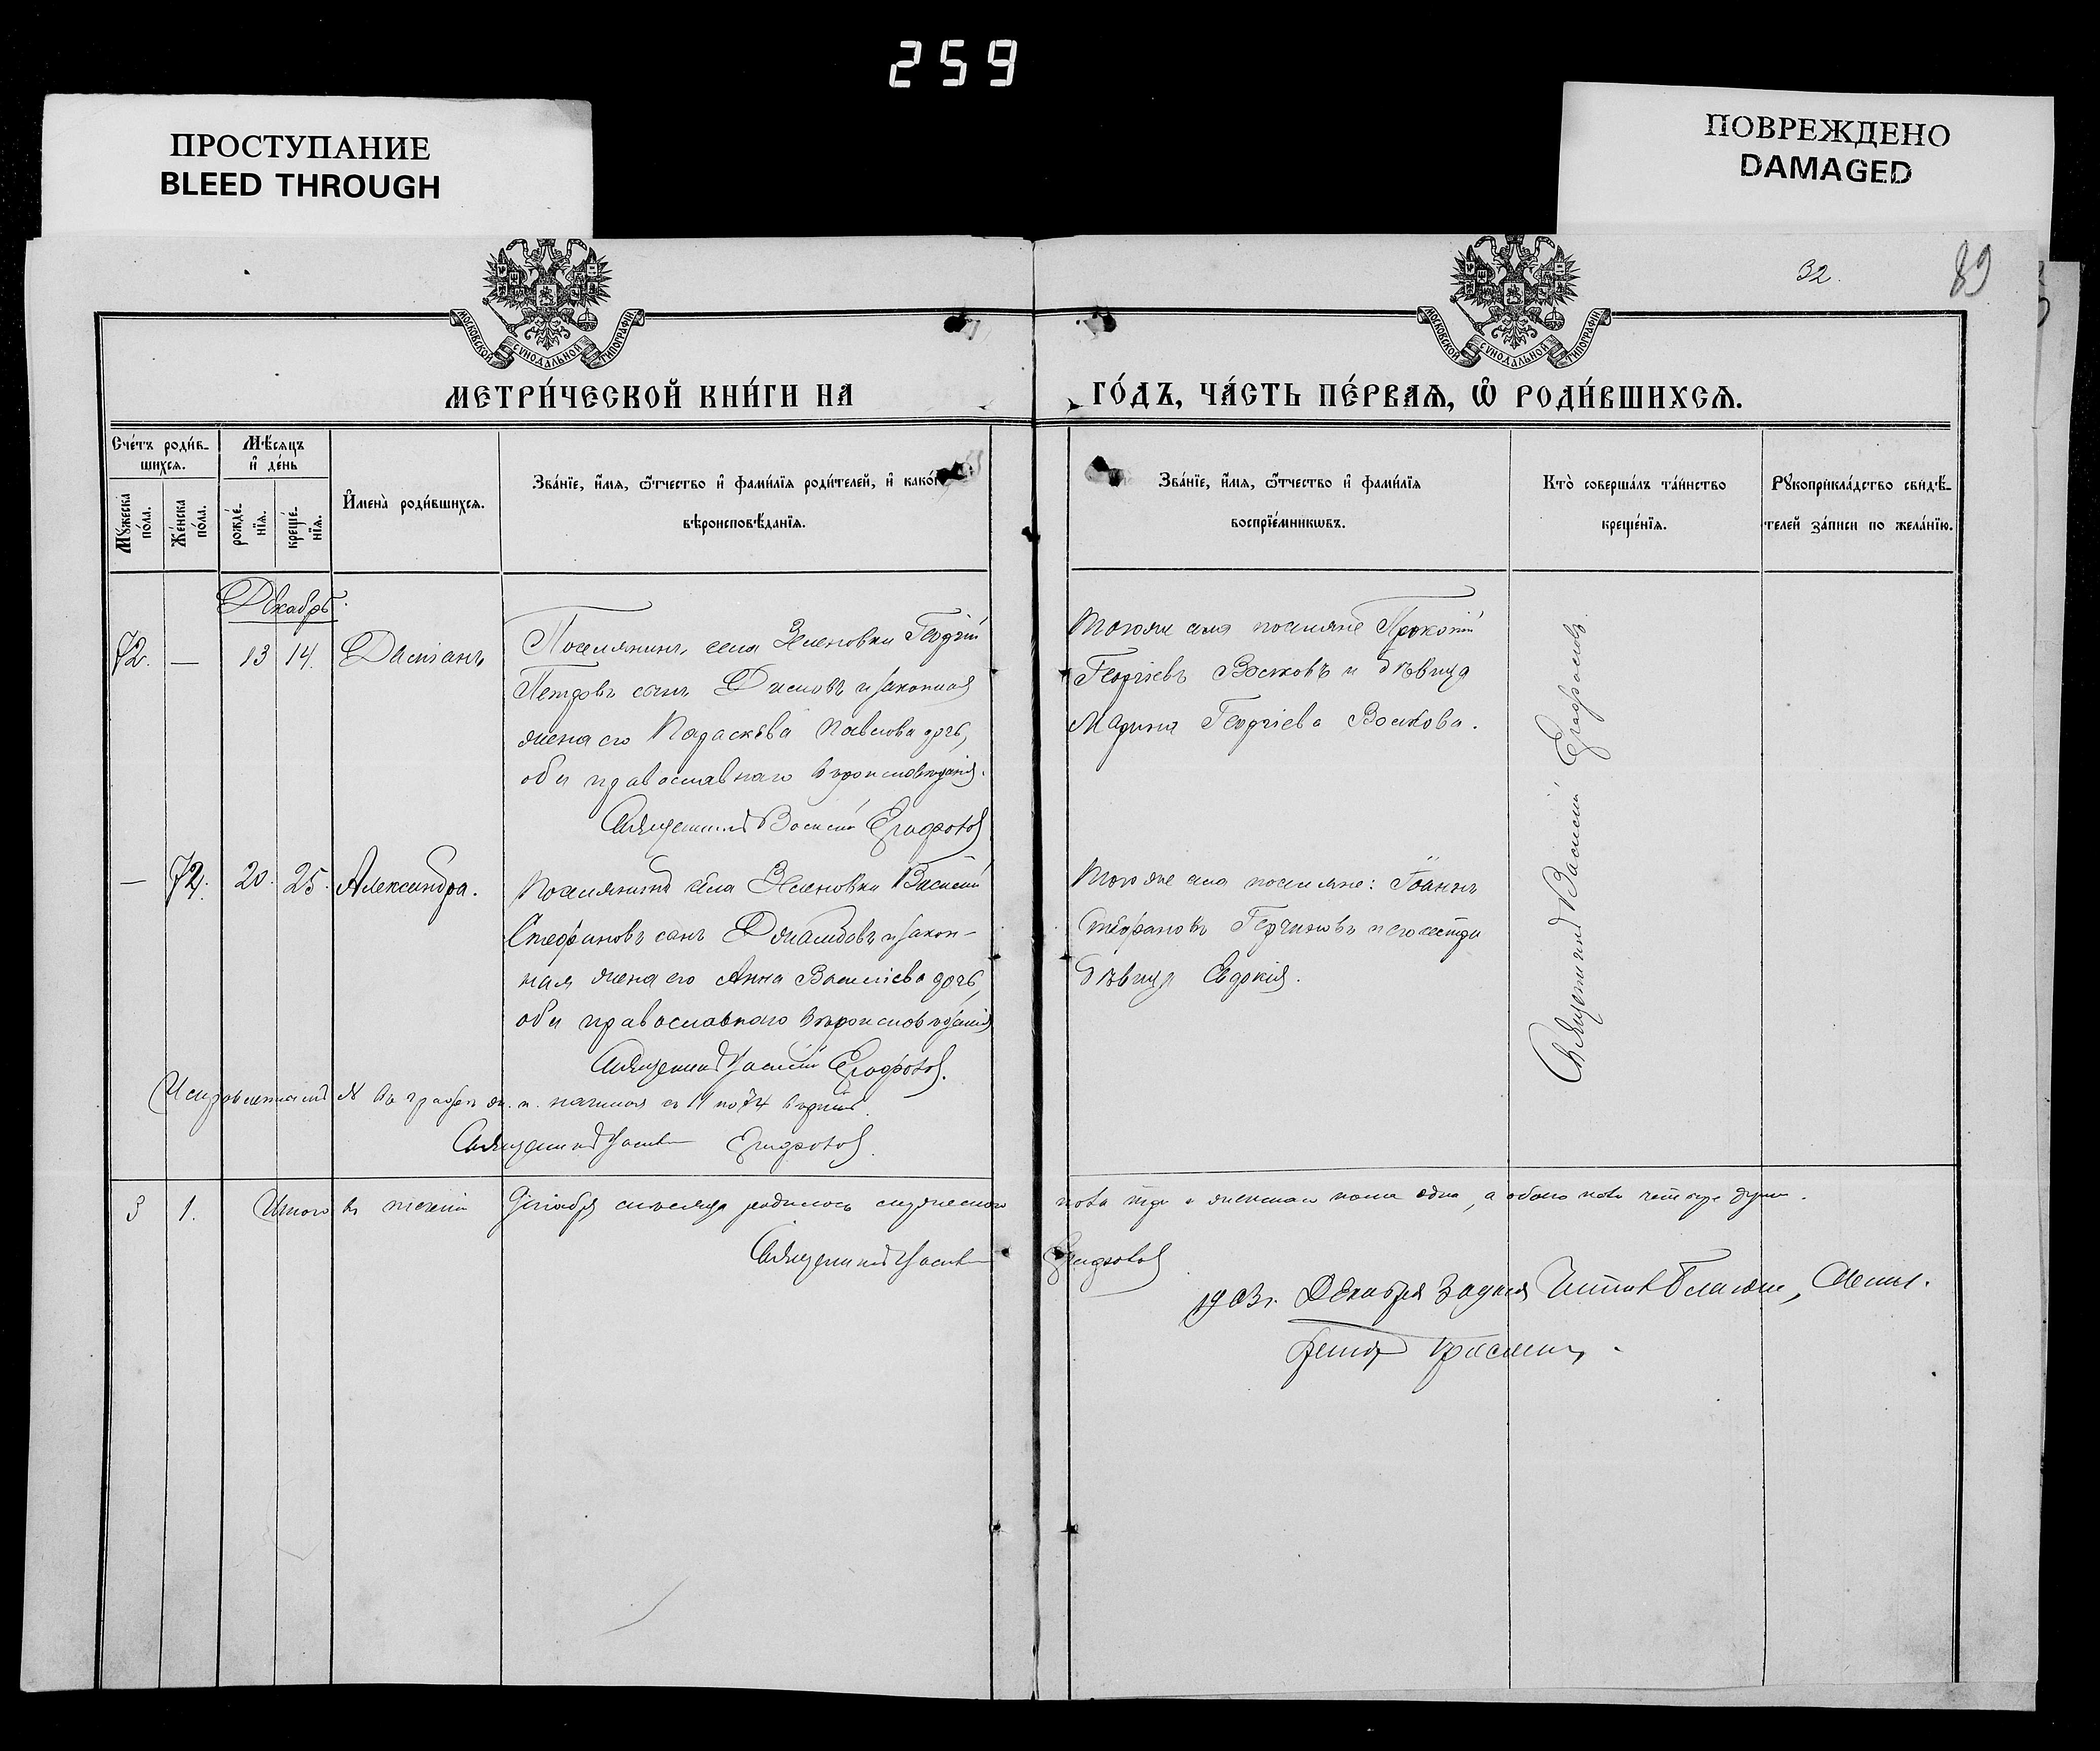 259
ПРОСТУПАНИЕ
BLEED THROUGH
ПОВРЕЖДЕНО
DAMAGED
32.
89
МОСКОВСКОЙ СѴНОДАЛЬНОЙ ТИПОГРАФІИ
МОСКОВСКОЙ СѴНОДАЛЬНОЙ ТИПОГРАФІИ
МЕТРИ́ЧЕСКОЙ КНИ́ГИ НА
ГО́ДЪ, ЧА́СТЬ ПЕ́РВАѦ, Ѽ РОДИ́ВШИХСѦ.
Сче́тъ роди́в-
шихсѧ.
Мꙋ́жеска
по́ла.
Же́нска
по́ла.
Мѣ́сѧцъ
и҆ де́нь
рожде́-
нїѧ.
креще́-
нїѧ.
И҆мена̀ роди́вшихсѧ.
Зва́нїе, и҆́мѧ, ѻ҆́тчество и҆ фами́лїѧ роди́телей, и҆ како́
вѣроисповѣ́данїѧ.
Зва́нїе, и҆́мѧ, ѻ҆́тчество и҆ фами́лїѧ
воспрїе́мникѡвъ.
Кто̀ соверша́лъ та́инство
креще́нїѧ.
Рꙋкоприкла́дство свидѣ́-
телей за́писи по жела́нїю.
Декабрь.
72. — 13 14. Даміанъ
Поселянинъ села Зеленовки Георгій
Петровъ сынъ и законная
жена его Параскева Павлова дочь,
оба православнаго вѣроисповѣданія.
Священникъ Василій
Тогоже села поселяне Прокопій
Георгіевъ Волковъ и дѣвица
Марина Георгіева Волкова.
Священникъ Василій
— 72. 20. 25. Александра.
Поселянинъ села Зеленовки Василій
Стефановъ сынъ и закон-
ная жена его Анна Василіева дочь,
оба православнаго вѣроисповѣданія
Священникъ Василій
Тогоже села поселяне: Іоаннъ
Стефановъ и его сестра
дѣвица Евдокія.
Исправленный № въ графѣ ж. п. начиная съ по 74 вѣрный.
Священникъ Василій
3 1. Итого въ теченіи Декабря мѣсяца родилось мужескаго
пола три и женскаго пола одна, а обоего пола четыре души.
Священникъ Василій
1903 г. Декабря